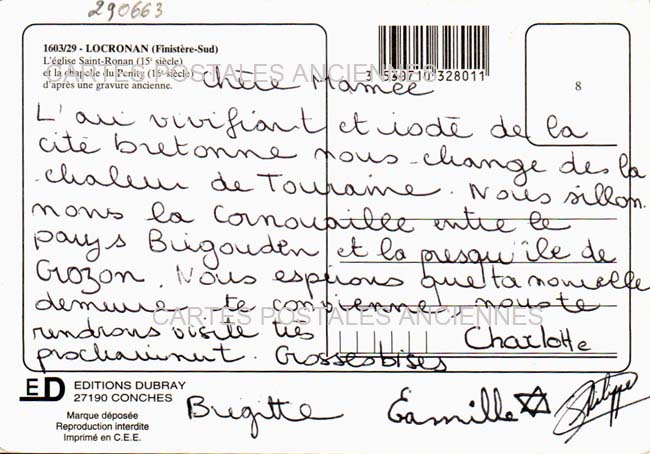 290663
1603/29 - LOCRONAN (Finistère-Sud)
L'église Saint-Ronan (15e siècle)
et la chapelle du Penity (15e siècle)
d'après une gravure ancienne.
3 530710 328011
8
CARTES POSTALES ANCIENNES
Chère Mamée
L'air vivifiant et iodé de la
cité bretonne nous change des la
chaleur de Touraine. Nous sillon
nons la Cornouaille entre le
pays Bigouden et la presqu'île de
Crozon. Nous espérons que ta nouvelle
demeure te convienne, nous te
CARTES POSTALES ANCIENNES
rendrons visite très
prochainement. Grosses bises
Charlotte
ED EDITIONS DUBRAY
27190 CONCHES
Marque déposée
Reproduction interdite
Imprimé en C.E.E.
Brigitte Camille Philippe